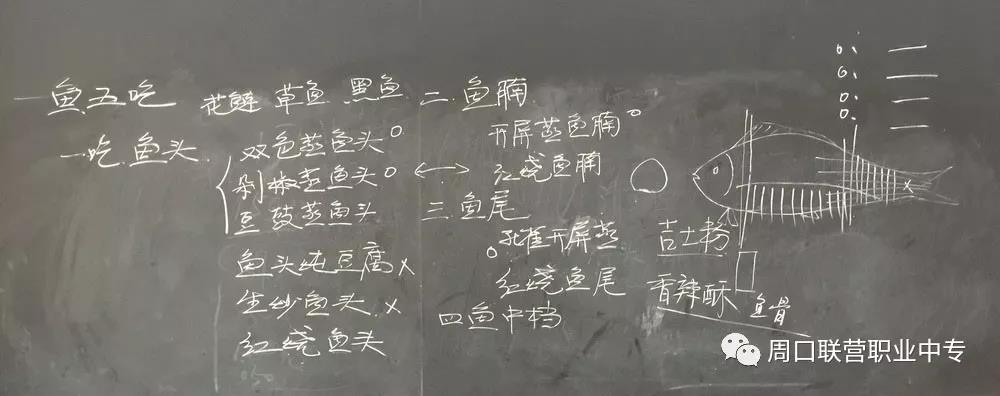 一鱼五吃 花鲢 草鱼 黑鱼
一吃.鱼头
双色蒸鱼头
剁椒蒸鱼头
豆豉蒸鱼头
鱼头炖豆腐 x
生炒鱼头 x
红烧鱼头
二.鱼腩
开屏蒸鱼腩
红烧鱼腩
三.鱼尾
孔雀开屏蒸
红烧鱼尾
四鱼中档
吉士粉
香辣酥
鱼骨
周口联营职业中专